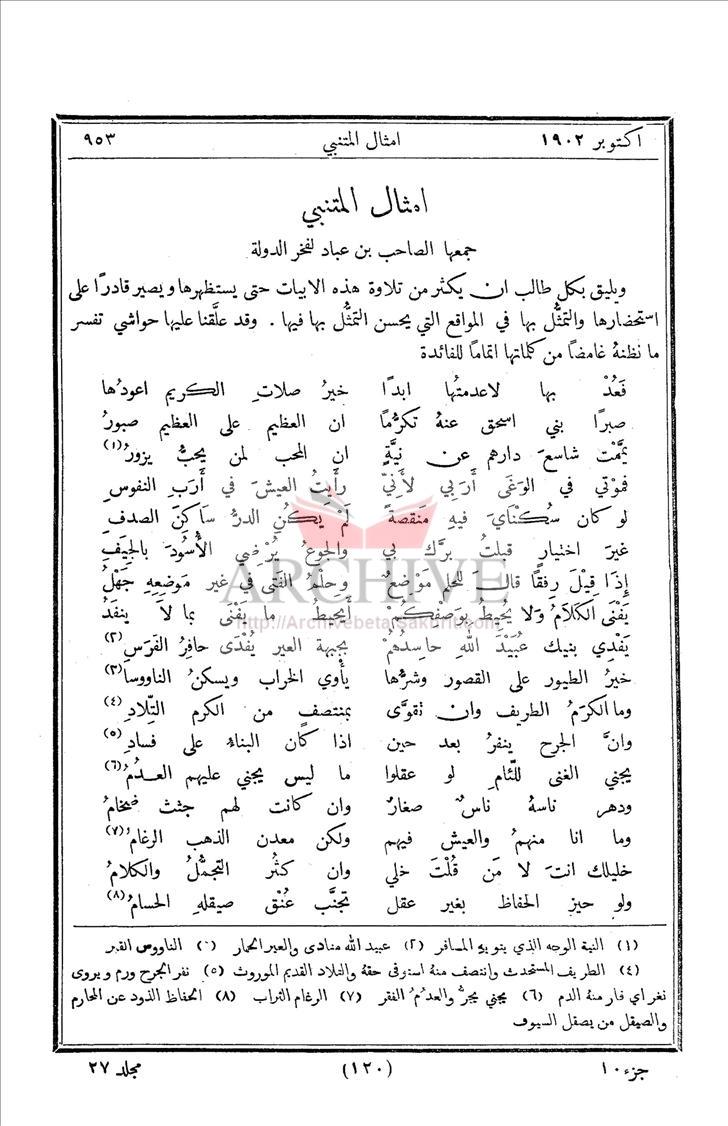 اكتوبر ١٩٠٢ امثال المتنبي ٩٥٣
امثال المتنبي
جمعها الصاحب بن عباد لفخر الدولة
ويليق بكل طالب ان يكثر من تلاوة هذه الابيات حتى يستظهرها ويصير قادرًا على
استحضارها والتمثُّل بها في المواقع التي يحسن التمثُّل بها فيها . وقد علَّقنا عليها حواشي تفسر
ما نظنهُ غامضًا من كلماتها اتمامًا للفائدة
فَعُدْ بها لاعدمتُها ابدًا خيرُ صلاتِ الكريم اعودُها
صبرًا بني اسحق عنهُ تكرُّمًا ان العظيم على العظيم صبورُ
يمَّمْت شاسعَ دارهم عن نيَّةٍ ان المحب لمن يحبُّ يزورُ (١)
فموْتي في الوَغَى أَرَبي لأَنِّي رأَيتُ العيشَ في أَرَبِ النفوسِ
لو كان سُكْنَايَ فيهِ مَنقصةً لَمْ يكُنِ الدرُّ سَاكنَ الصدفِ
غيرَ اختيارٍ قبلتُ برَّك بي والجوعُ يُرْضي الأُسُودَ بالجِيَفِ
إِذَا قيْلَ رِفقًا قالَ للحلمِ مَوْضعٌ وحلْمُ الفَتى في غيرِ مَوْضعِهِ جَهْلُ
يَفْنَى الكَلامُ وَلا يحيطُ بِوَصْفِكُمْ أَيحيطُ ما يَفْنَى بما لا ينفَدُ
يَفْدِي بنيك عُبَيْدَ اللهِ حاسِدُهُمْ بجبهةِ العيرِ يُفْدَى حافِرُ الفَرَسِ (٢)
خيرُ الطيورِ على القصورِ وشرُّها يأْوي الخراب ويسكنُ الناووسا (٣)
وما الكرَمُ الطريف وان تقوَّى بمنتصف من الكرم التِّلادِ (٤)
وانَّ الجرح ينفرُ بعد حين اذا كان البناءُ على فسادِ (٥)
يجني الغنى للِّئامِ لو عقلوا ما ليس يجني عليهم العدُمُ (٦)
ودهر ناسهُ ناسٌ صغارٌ وان كانت لهم جثث ضخامُ
وما انا منهمُ والعيش فيهم ولكن معدن الذهب الرغامُ (٧)
خليلك انتَ لا مَن قُلْتَ خلي وان كثُر التجمُّلُ والكلامُ
ولو حيز الحفاظ بغير عقل تجنَّب عُنْق صيقلهِ الحسامُ (٨)
(١) النية الوجه الذي ينويه المسافر (٢) عبيد الله منادى والعير الحمار (٣) الناووس القبر
(٤) الطريف المستحدث وانتصف منهُ استوفى حقهُ والتلاد القديم الموروث (٥) نفر الجرح ورم ويروى
نغر اي فار منهُ الدم (٦) يجني يجرُّ والعدُمُ الفقر (٧) الرغام التراب (٨) الحفاظ الذود عن المحارم
والصيقل من يصقل السيوف
جزء ١٠ (١٢٠) مجلد ٢٧
ARCHIVE
http://Archivebeta.Sakhrit.com